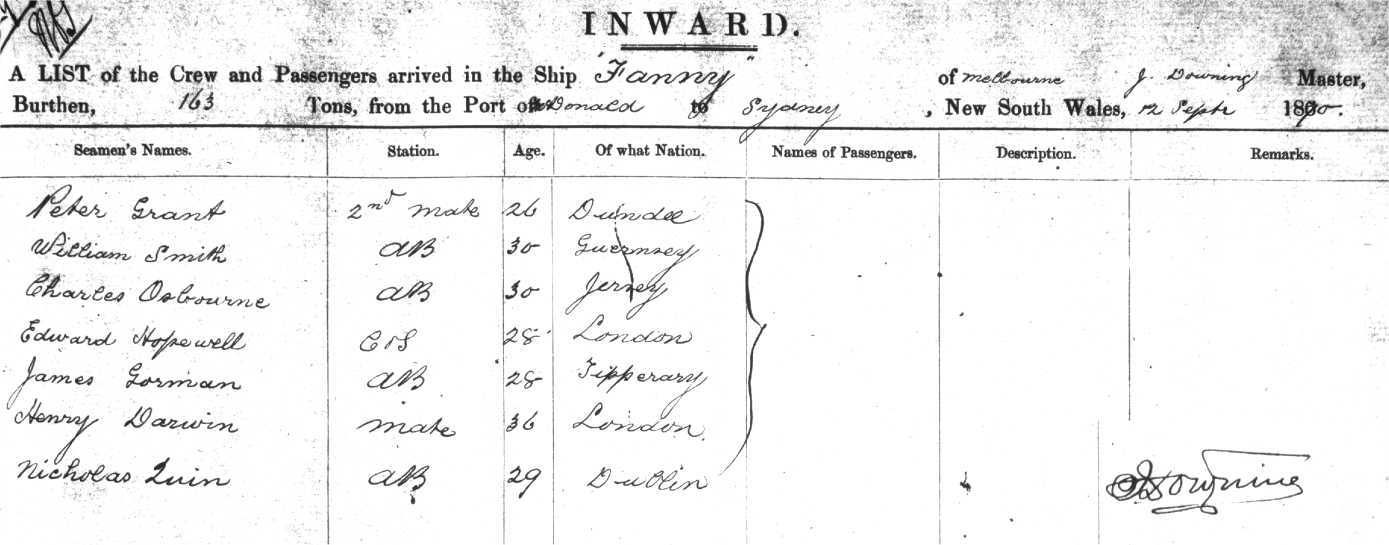 INWARD.
A LIST of the Crew and Passengers arrived in the Ship "Fanny" of Melbourne J. Downing Master,
Burthen, 163 Tons, from the Port of Donald to Sydney, New South Wales, 12 Septr 1890.
Seamen's Names. Station. Age. Of what Nation. Names of Passengers. Description. Remarks.
Peter Grant 2nd mate 26 Dundee
William Smith AB 30 Guernsey
Charles Osbourne AB 30 Jersey
Edward Hopewell 28 London
James Gorman AB 28 Tipperary
Henry Darwin mate 36 London
Nicholas Quin AB 29 Dublin
J Downing